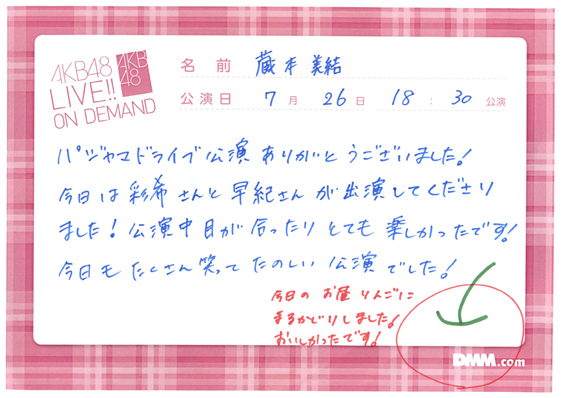 AKB48
LIVE!!
ON DEMAND
AKB
48
名前 蔵本美結
公演日 7月26日 18:30公演
パジャマドライブ公演ありがとうございました!
今日は彩希さんと早紀さんが出演してくださり
ました!公演中目が合ったりとても楽しかったです!
今日もたくさん笑ってたのしい公演でした!
今日のお昼りんごに
まるかじりしました!
おいしかったです!
DMM.com